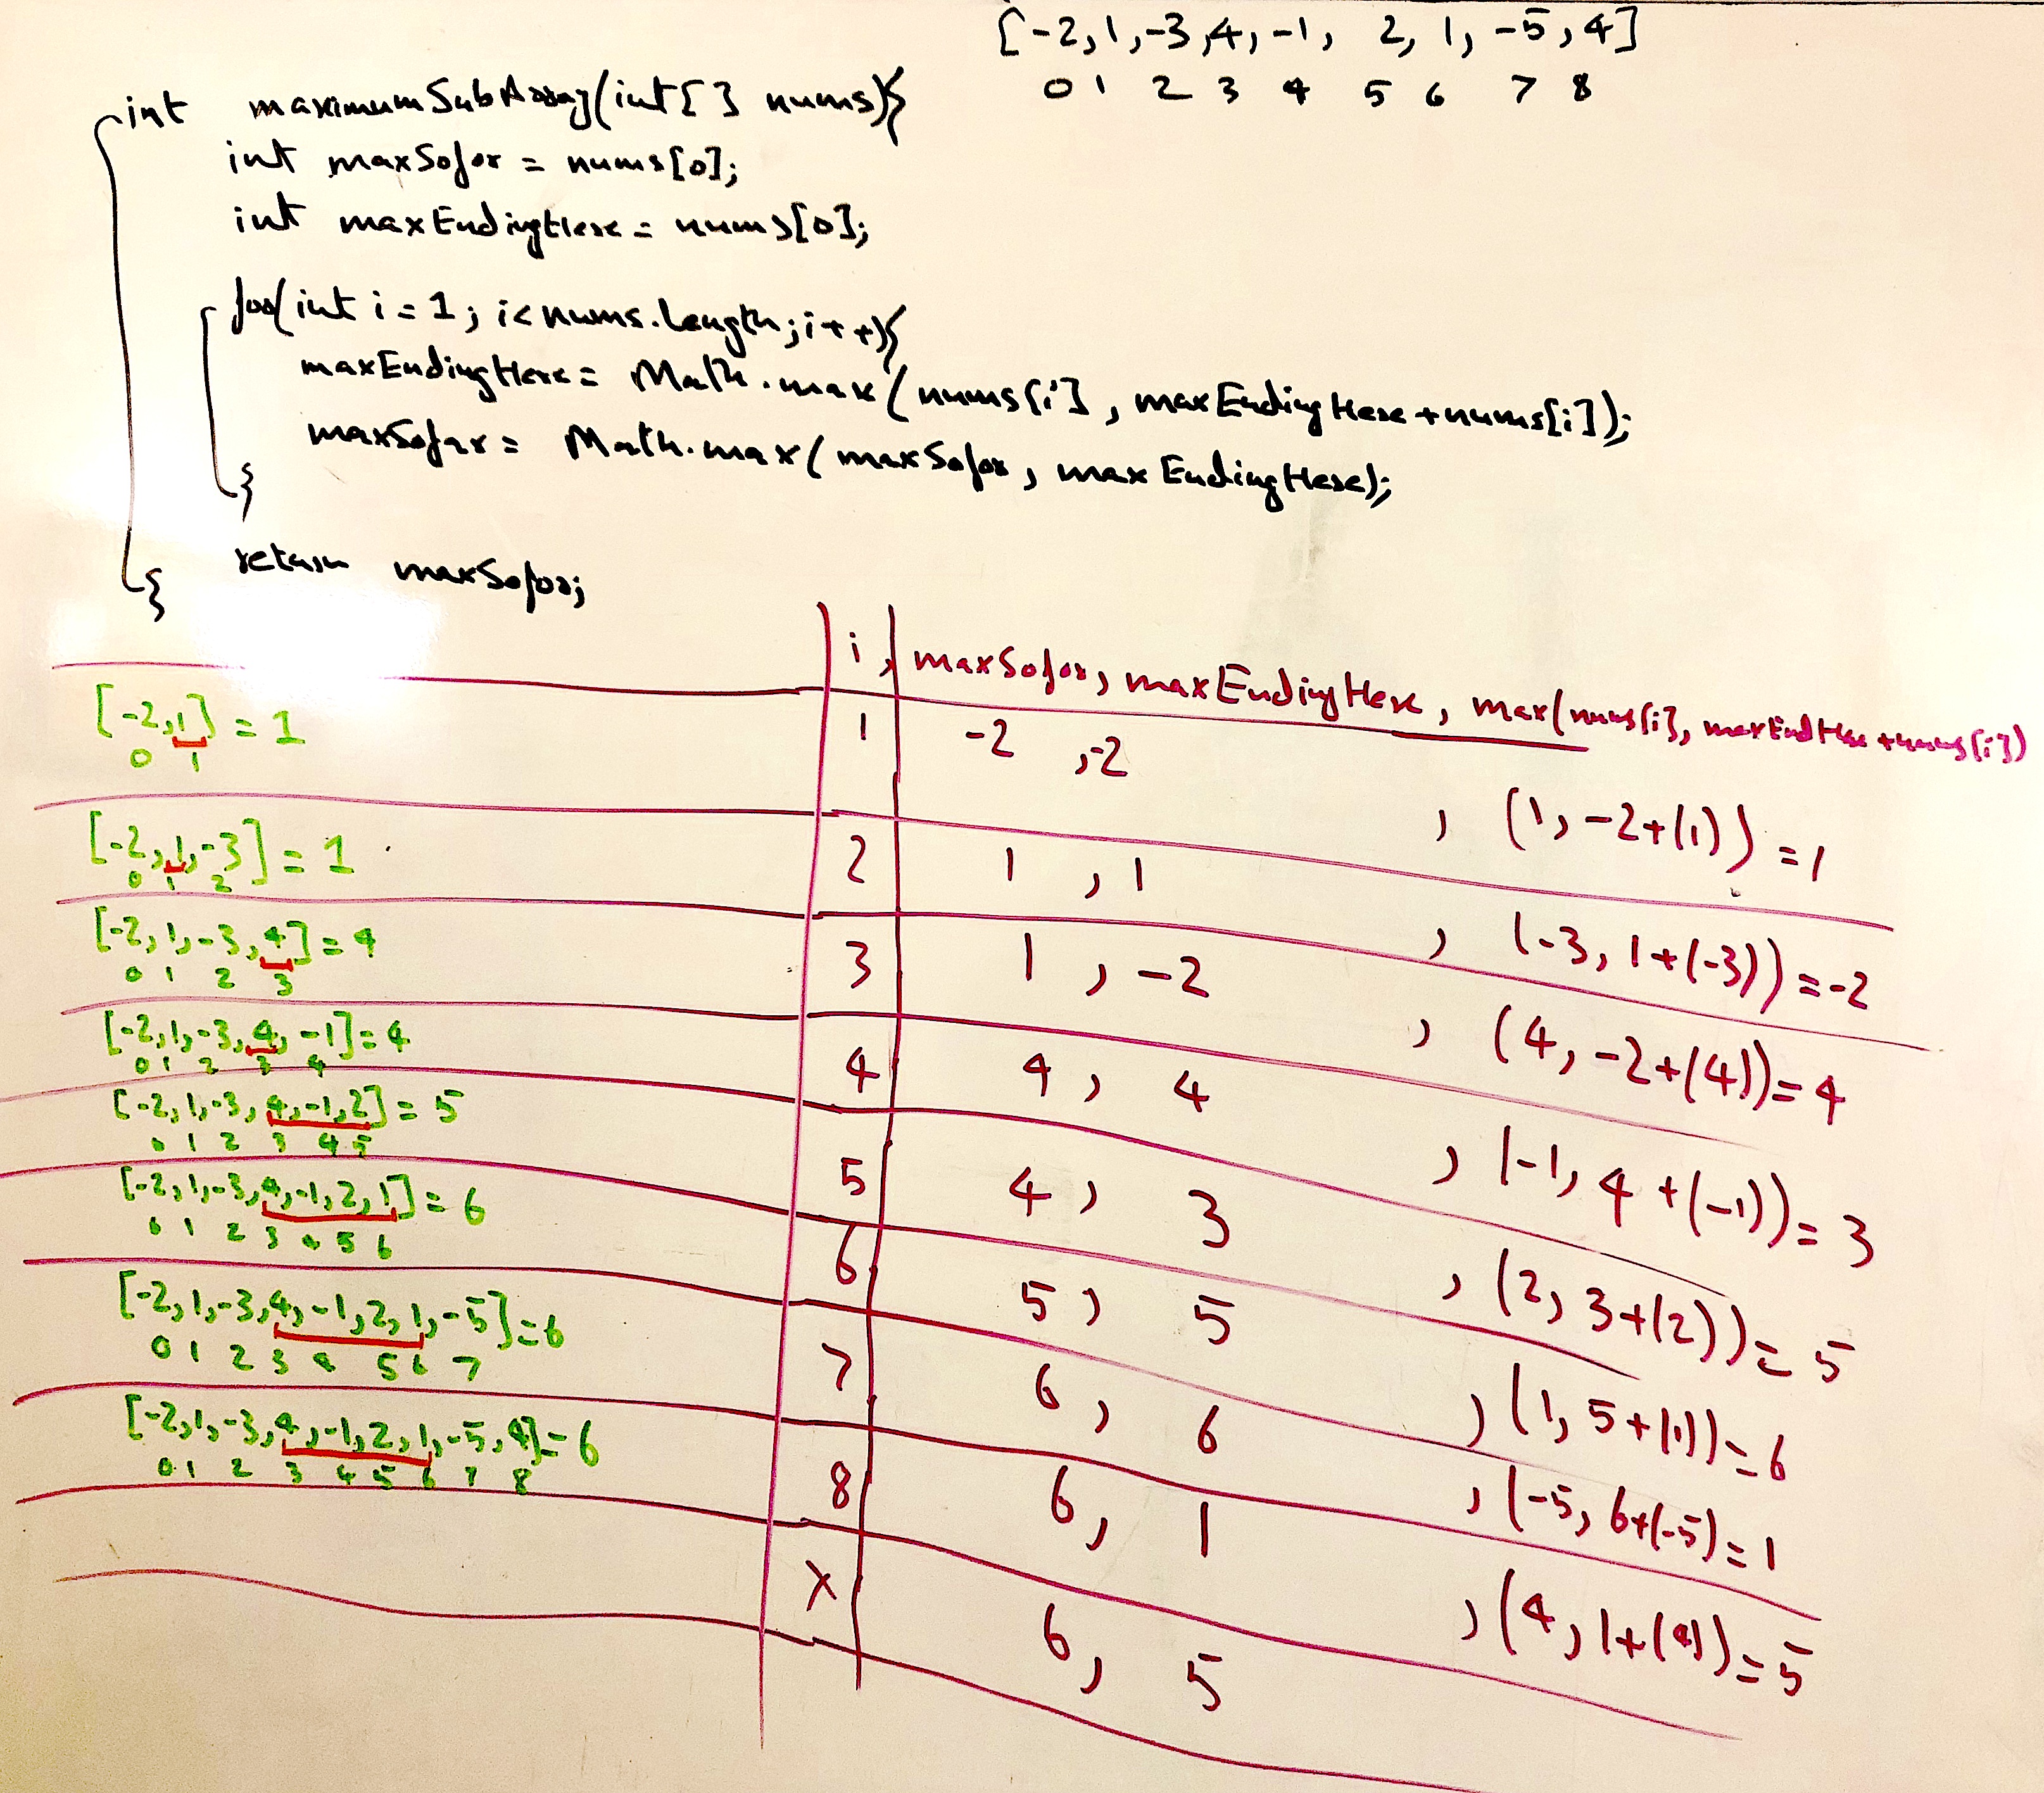 [-2,1,-3,4,-1, 2, 1, -5, 4]
0 1 2 3 4 5 6 7 8
int maximumSubArray(int[] nums){
int maxSofar = nums[0];
int maxEndingHere = nums[0];
for(int i = 1; i< nums.length; i++){
maxEndingHere = Math.max(nums[i], maxEndingHere+nums[i]);
maxSofar = Math.max(maxSofar, maxEndingHere);
}
return maxSofar;
}
i, maxSofar, maxEndingHere, max(nums[i], maxEndHere+nums[i])
[-2,1] = 1
0 1
1 -2 ,-2 , (1, -2+(1)) = 1
[-2,1,-3] = 1
0 1 2
2 1 , 1 , (-3, 1+(-3)) = -2
[-2,1,-3,4] = 4
0 1 2 3
3 1 , -2 , (4, -2+(4)) = 4
[-2,1,-3,4,-1] = 4
0 1 2 3 4
4 4 , 4 , (-1, 4+(-1)) = 3
[-2,1,-3,4,-1,2] = 5
0 1 2 3 4 5
5 4 , 3 , (2, 3+(2)) = 5
[-2,1,-3,4,-1,2,1] = 6
0 1 2 3 4 5 6
6 5 , 5 , (1, 5+(1)) = 6
[-2,1,-3,4,-1,2,1,-5] = 6
0 1 2 3 4 5 6 7
7 6 , 6 , (-5, 6+(-5) = 1
[-2,1,-3,4,-1,2,1,-5,4] = 6
0 1 2 3 4 5 6 7 8
8 6, 1 , (4, 1+(4)) = 5
X 6, 5